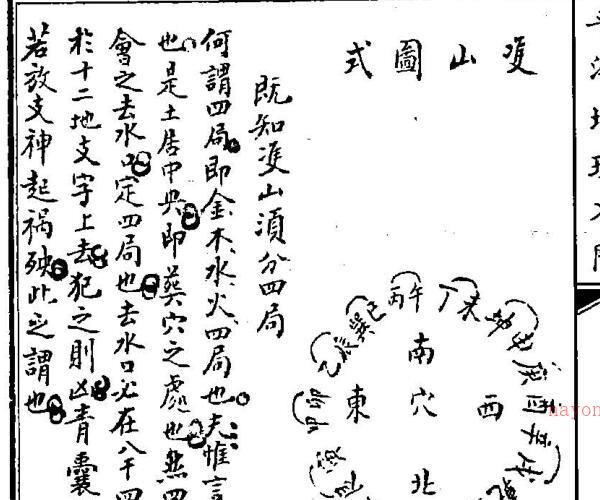 雙山圖式
南
東
穴
西
北
丙午
丁未
坤申
庚酉
辛戌
巽巳
乙辰
甲卯
既知雙山須分四局
何謂四局即金木水火四局也夫惟言
也是土居中央即葬穴之處也然四
會之去水口定四局也去水口必在八干四
於十二地支字上去犯之則凶青囊
若放支神起禍殃此之謂也
nayon